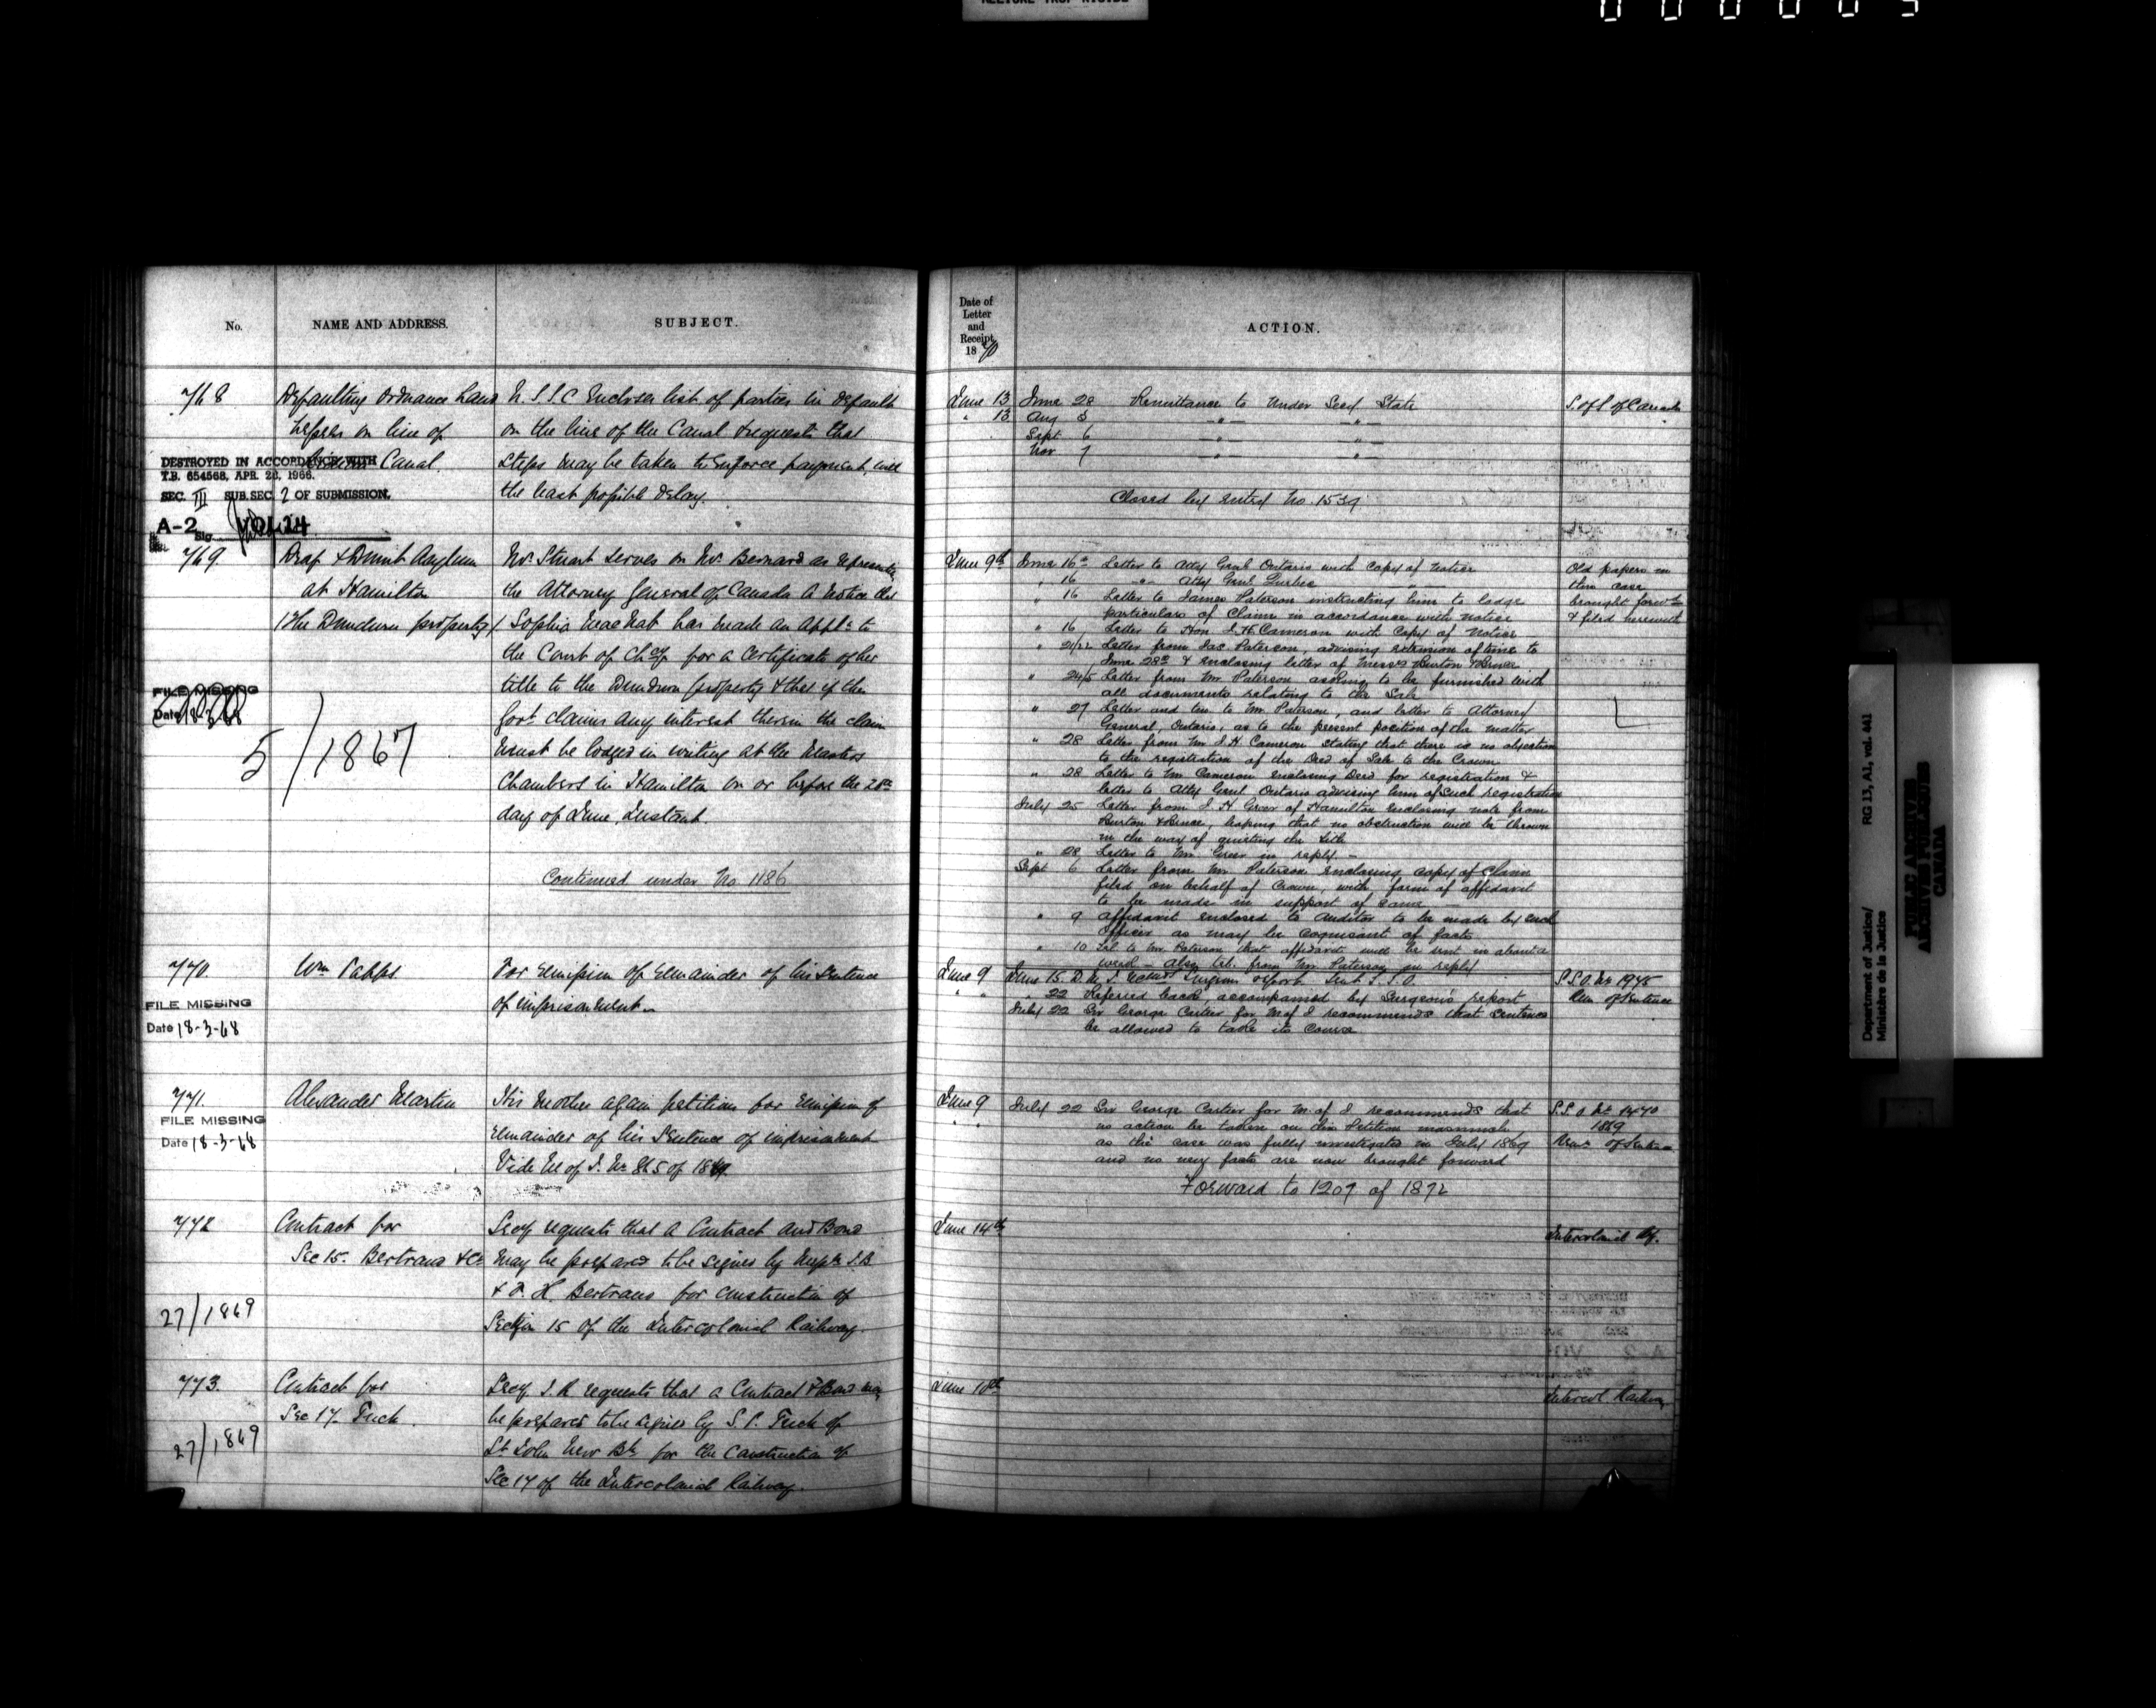 No.
NAME AND ADDRESS.
SUBJECT.
768
Defaulting Ordnance Land
Lessees on line of
Canal.
U. S. S. C Encloses list of parties in default
on the line of the Canal & requests that
steps may be taken to enforce payment, with
the least possible delay.
DESTROYED IN ACCORDANCE WITH
T.B. 654568, APR. 28, 1966.
SEC. III SUB.SEC. 2 OF SUBMISSION.
A-2 VOL 24
Sig.
769.
Deaf & Dumb Asylum
at Hamilton
(The Dundurn property)
Mr. Stuart serves on Mr. Bernard as representing
the Attorney General of Canada a Notice that
Sophia MacNab has made an Appln. to
the Court of Chcy for a Certificate of her
title to the Dundurn property & that if the
Govt. claims any interest therein the claim
must be lodged in writing at the Masters
Chambers in Hamilton on or before the 28th
day of June, Instant.
FILE MISSING
Date 18-3-68
5/1867
Continued under No 1186
770.
Wm
For remission of remainder of his sentence
of imprisonment.
FILE MISSING
Date 18-3-68
771.
Alexander Martin
His mother again petitions for remission of
remainder of his sentence of imprisonment
Vide M of J. No 865 of 1869.
FILE MISSING
Date 18-3-68
772
Contract for
Sec 15. Bertrand & Co
Secy requests that a Contract and Bond
may be prepared to be signed by Messrs J.B
& F. H. Bertrand for construction of
Section 15 of the Intercolonial Railway.
27/1869
773.
Contract for
Sec 17. Tuck.
Secy. I. R requests that a Contract & Bond may
be prepared to be signed by S. P. Tuck of
St John New Bk for the Construction of
Sec 17 of the Intercolonial Railway.
27/1869
Date of
Letter
and
Receipt
1870
ACTION.
June 13
" 13
June 28 Remittance to Under Secy State
Aug 3 " "
Sept 6 " "
Nov 7 " "
Closed by entry No. 1539
S. of S. of Canada
June 9th
June 16th Letter to Atty Genl Ontario with copy of notice
" 16 " Atty Genl Quebec "
" 16 Letter to James Paterson instructing him to lodge
particulars of Claim in accordance with notice
" 16 Letter to Hon J. H. Cameron with copy of notice
" 21/22 Letter from Jas. Paterson, advising extension of time to
June 28th & enclosing letter of Messrs Burton & Bruce
" 24/5 Letter from Mr. Paterson asking to be furnished with
all documents relating to the Sale
" 27 Letter and to Mr Paterson, and letter to Attorney
General, Ontario, as to the present position of the matter
" 28 Letter from Mr J. H. Cameron stating that there is no objection
to the registration of the Deed of Sale to the Crown
" 28 Letter to Mr Cameron enclosing Deed for registration &
letter to Atty Genl Ontario advising him of such registration
July 25 Letter from J. H. Greer of Hamilton enclosing note from
Burton & Bruce, hoping that no obstruction will be thrown
in the way of quieting the title
" 28 Letter to Mr Greer in reply -
Sept 6 Letter from Mr Paterson enclosing copy of Claim
filed on behalf of Crown, with form of affidavit
to be made in support of same
" 9 Affidavit enclosed to Auditor to be made by such
Officer as may be cognisant of facts
" 10 Tel to Mr Paterson that affidavit will be sent in about a
week - Also tel. from Mr Paterson in reply
Old papers in
this case
brought forwd
& filed herewith
June 9
" "
June 15. D. M. J. Surgeons report. Sent S. S. O.
" 22 Referred back, accompanied by Surgeon's report
July 22 Sir George Cartier for M of J recommends that sentence
be allowed to take its course
S. S. O. No 1945
Rem. of Sentence
June 9
" "
July 22 Sir George Cartier for M. of J. recommends that
no action be taken on this Petition inasmuch
as the case was fully investigated in July 1869
and no new facts are now brought forward
Forward to 1209 of 1872
S. S. O. No 1470
1869
Rem. of Sentence
June 14th
Intercolonial Ry.
June 10th
Intercol Railway
Department of Justice/
Ministère de la Justice
RG 13, A1, vol. 441
PUBLIC ARCHIVES
ARCHIVES PUBLIQUES
CANADA